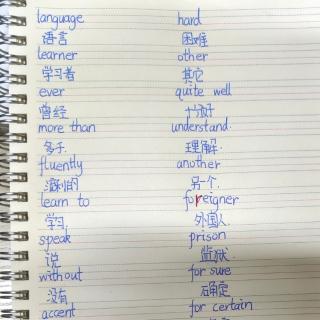 language
语言
learner
学习者
ever
曾经
more than
多于
fluently
流利的
learn to
学习
speak
说
without
没有
accent
hard
困难
other
其它
quite well
十分好
understand.
理解.
another
另一个.
foreigner
外国人.
prison
监狱
for sure
确定
for certain